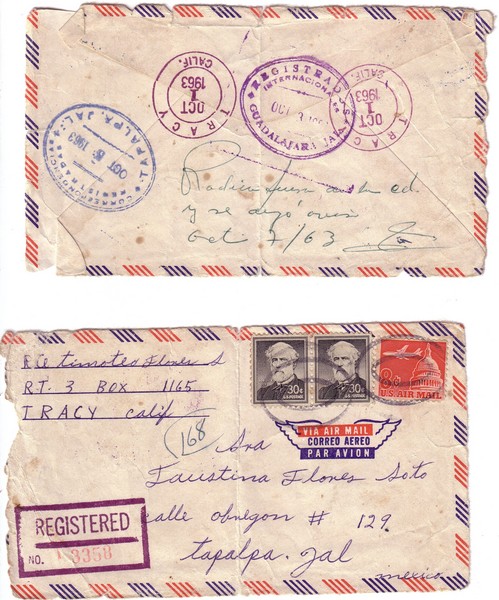 TRACY
CALIF.
OCT
1
1963
REGISTRADOS
INTERNACIONAL
OCT 3 196
GUADALAJARA JAL.
TRACY
CALIF.
OCT
1
1963
TAPALPA, JAL.
OCT 5 1963
CORRESPONDENCIA
REGISTRADA
en la cd.
y se dejó
Oct 7/63
Rte timoteo Flores S
RT. 3 BOX 1165
TRACY Calif
30¢
U.S. POSTAGE
30¢
U.S. POSTAGE
8¢
U.S. AIR MAIL
VIA AIR MAIL
CORREO AEREO
PAR AVION
168
Sra
Faustina Flores Soto
calle obregon # 129
tapalpa. Jal
mexico
REGISTERED
NO. 3358